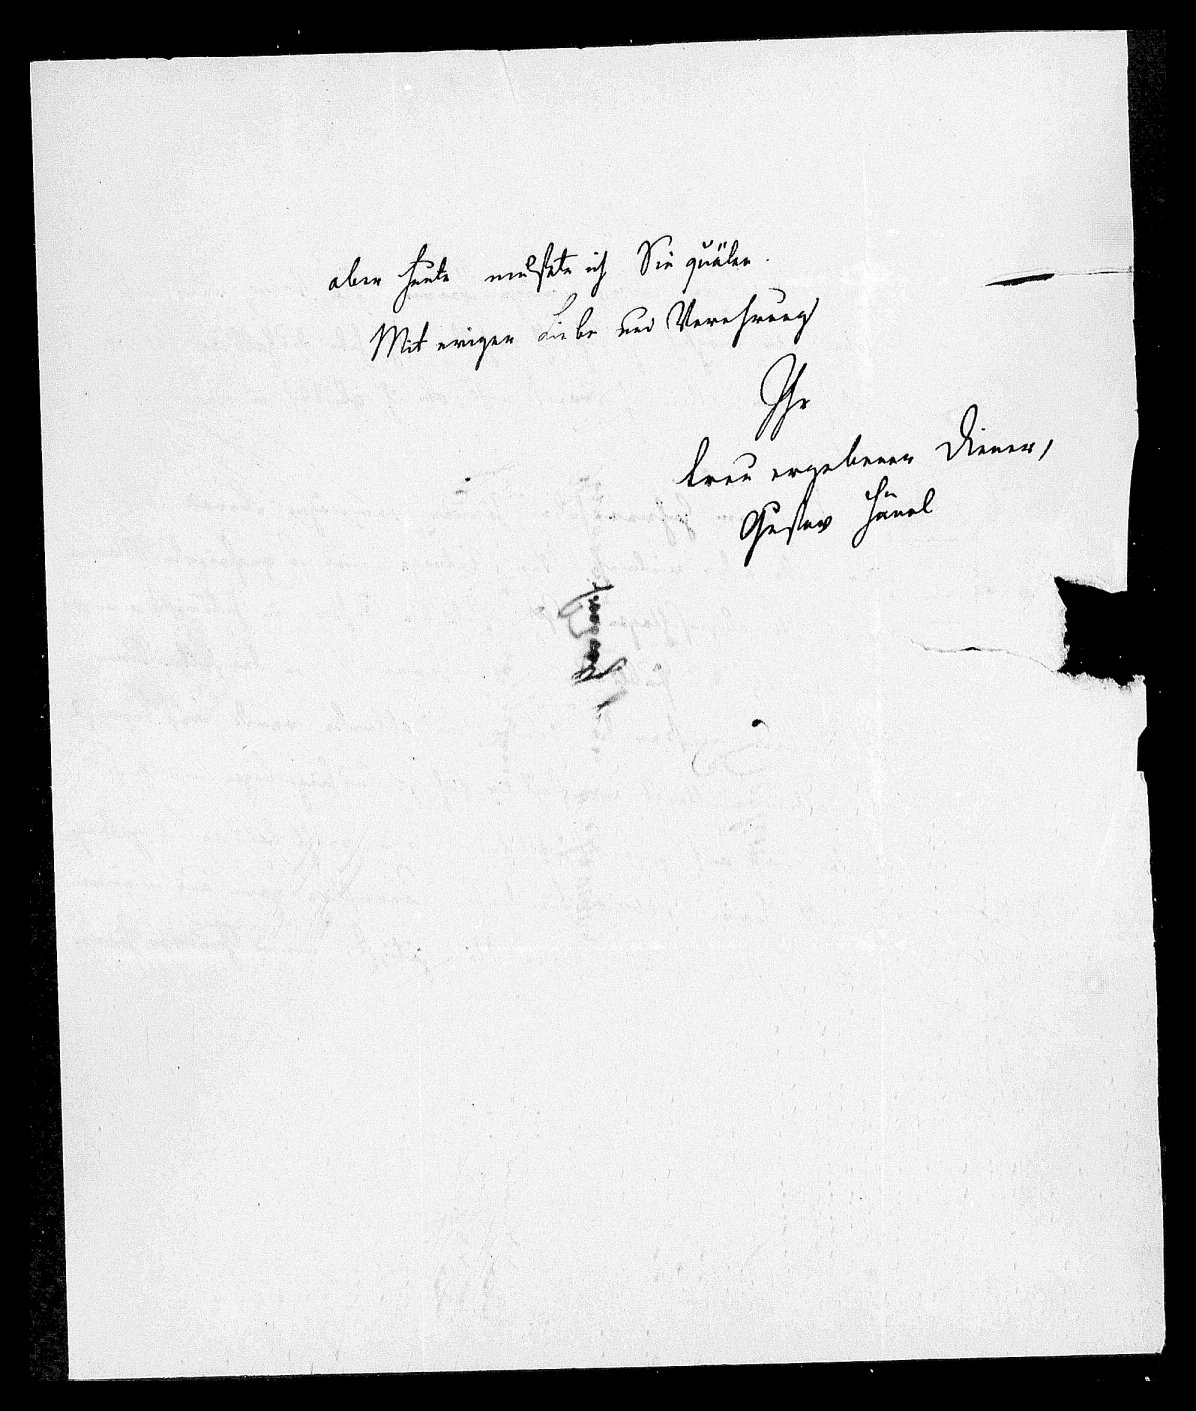 aber heute mußte ich Sie quälen.
Mit ewiger Liebe und Verehrung
Ihr
treu ergebener Diener,
Gustav Hänel